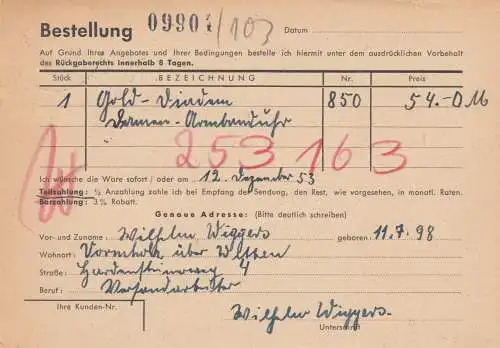 Bestellung 09904/103 Datum
Auf Grund Ihres Angebotes und Ihrer Bedingungen bestelle ich hiermit unter dem ausdrücklichen Vorbehalt
des Rückgaberechts innerhalb 8 Tagen.
Stück BEZEICHNUNG Nr. Preis
1 Gold-Diadem 850 54.-DM
Damen-Armbanduhr
253163
Ich wünsche die Ware sofort / oder am 12. Dezember 53
Teilzahlung: ⅓ Anzahlung zahle ich bei Empfang der Sendung, den Rest, wie vorgesehen, in monatl. Raten.
Barzahlung: 3% Rabatt.
Genaue Adresse: (Bitte deutlich schreiben)
Vor- und Zuname: Wilhelm Wiggers geboren 11.7.98
Wohnort: Vormholz über Witten
Straße: Hardensteinerweg 4
Beruf: Versandarbeiter
Ihre Kunden-Nr.
Wilhelm Wiggers.
Unterschrift